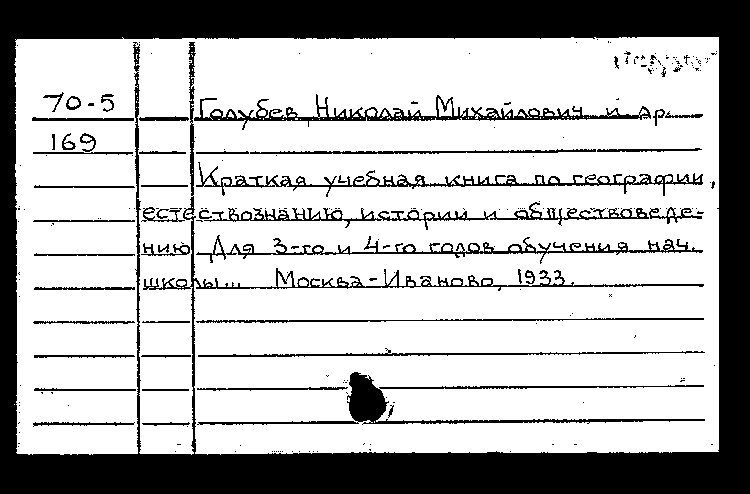 70-5 Голубев, Николай Михайлович и др.
169
Краткая учебная книга по географии,
естествознанию, истории и обществоведе-
нию. Для 3-го и 4-го годов обучения нач.
школы... Москва-Иваново, 1933.